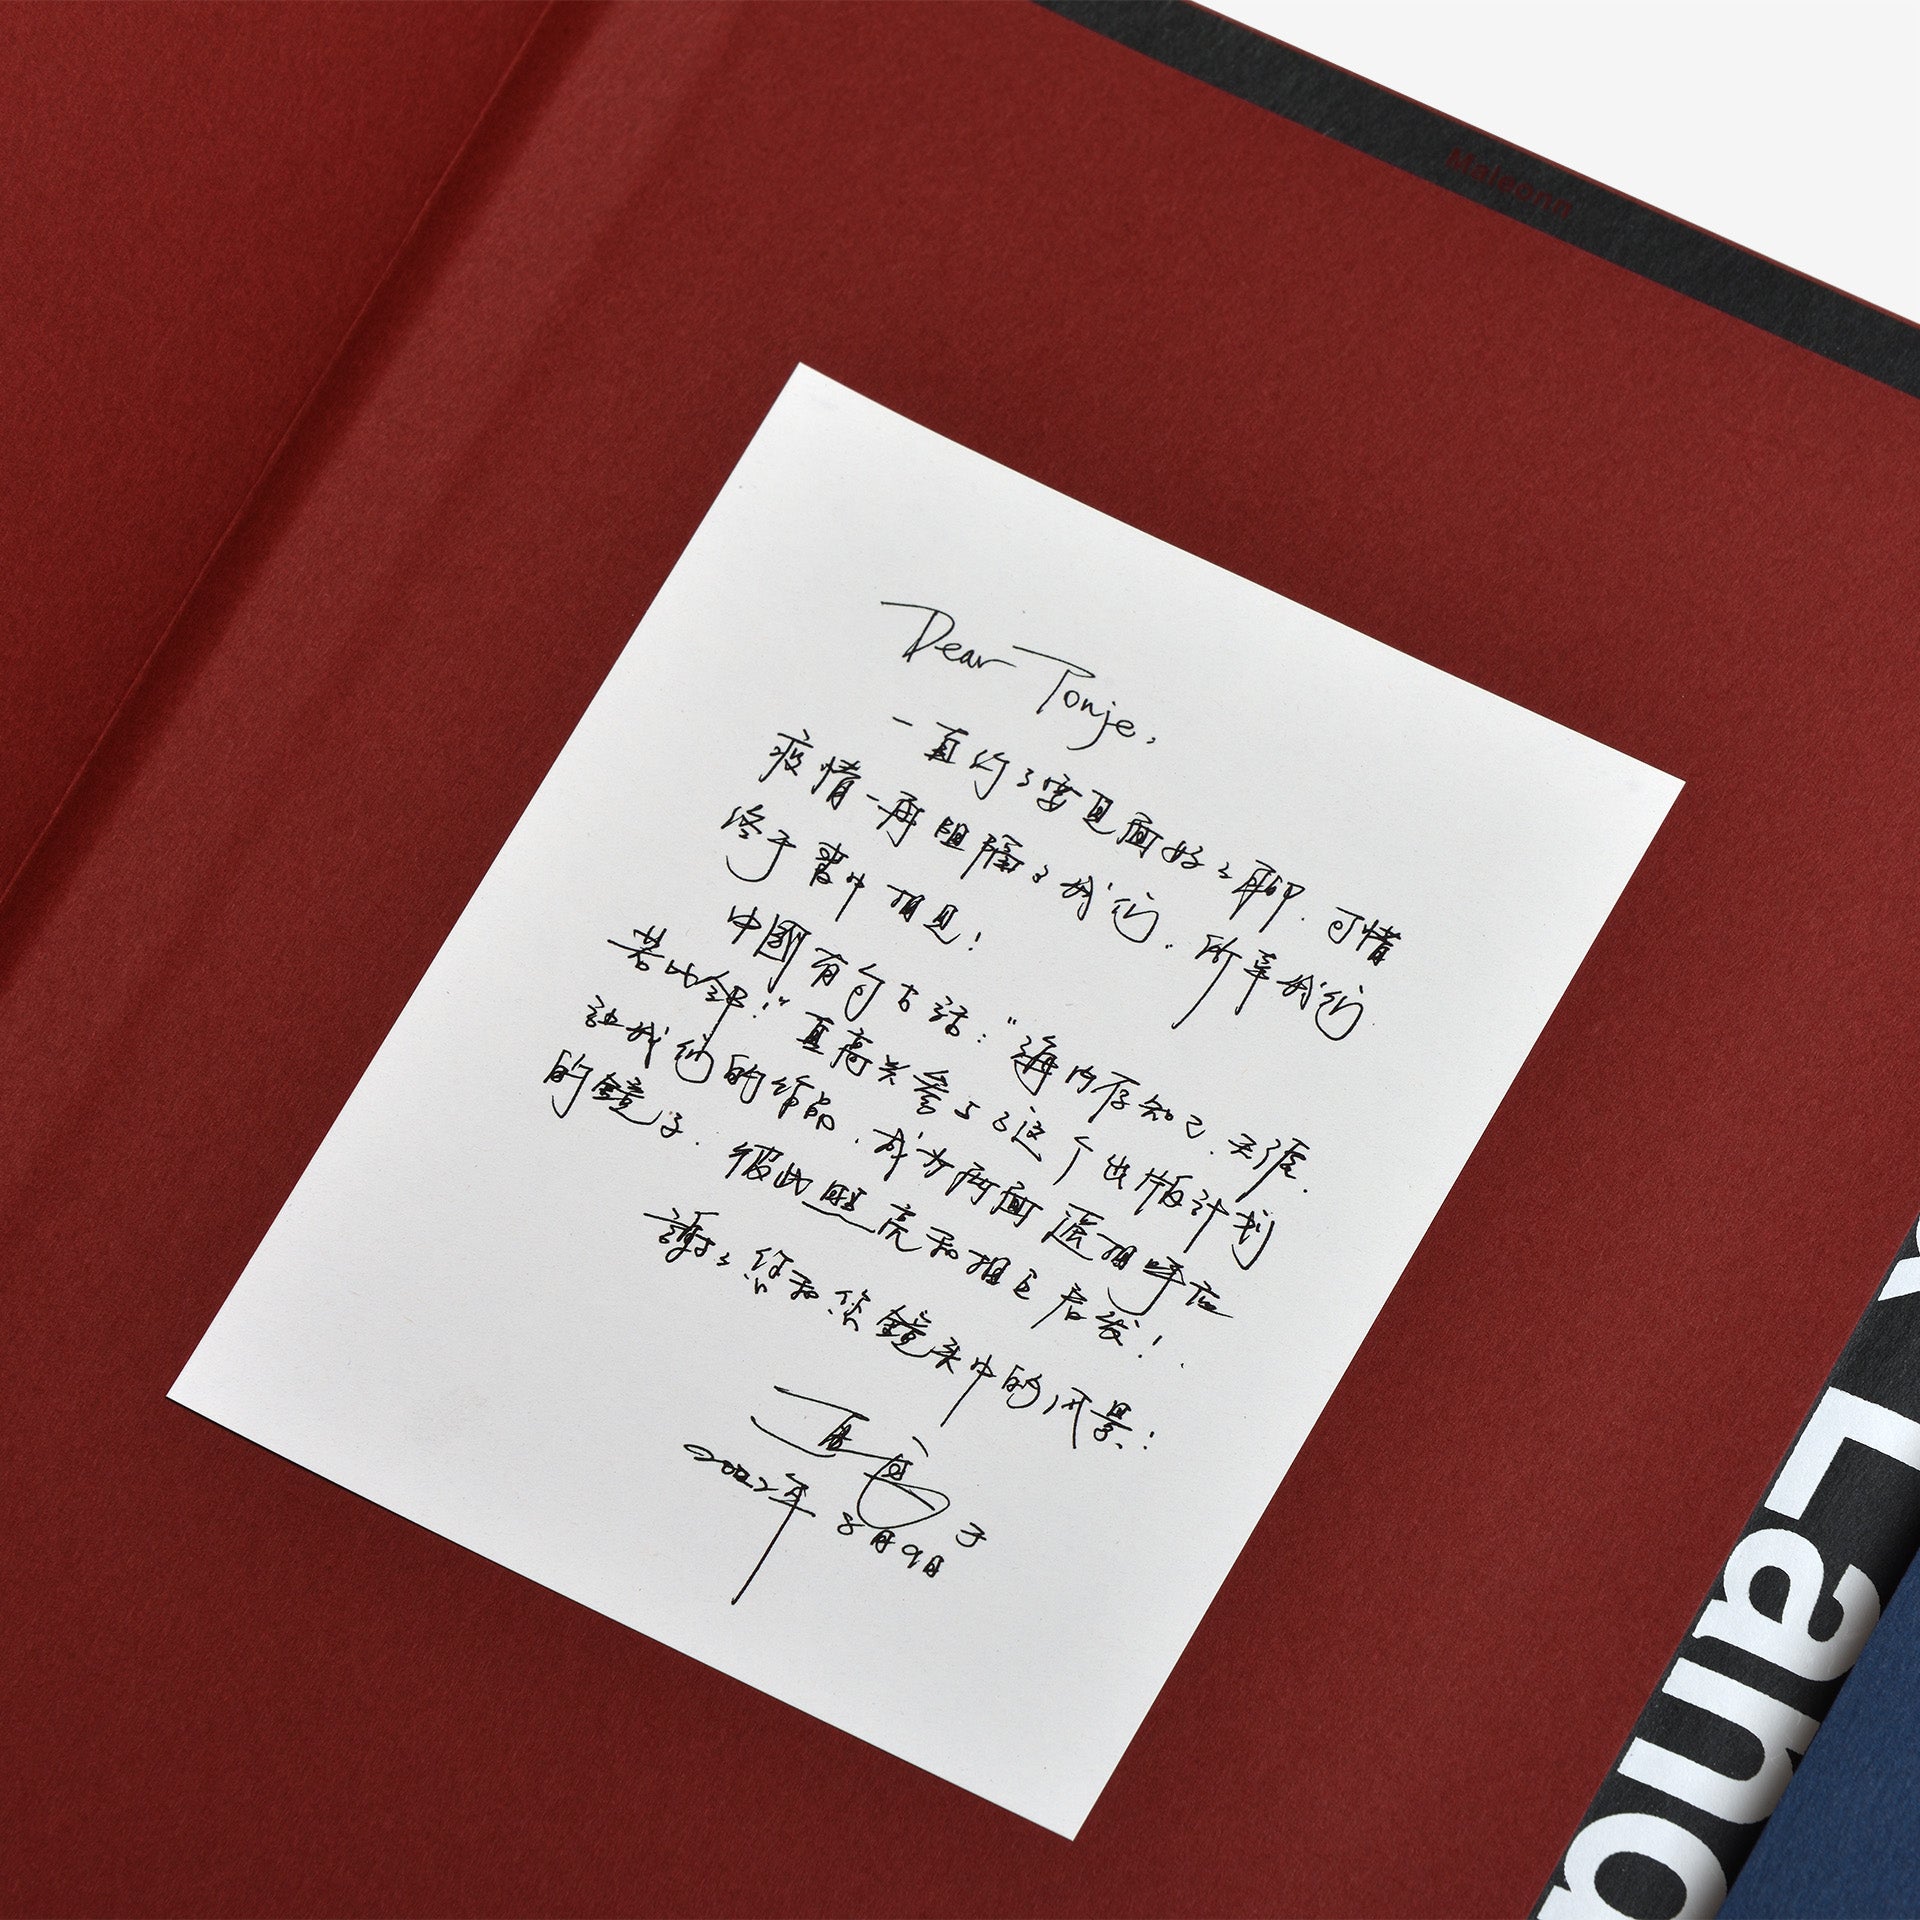 MaleOnn
Dear Tonje,
一直约了要见面好好聊. 可惜
疫情一再阻隔了我们. 所幸我们
终于書中相见!
中國有句古话: "海内存知己. 天涯.
若比邻!" 真高兴參与了这个出版计划
让我们的作品. 成为两面遥相呼应
的鏡子. 彼此照亮和相互启发!.
謝谢您和您鏡头中的风景!
2022年 8月9日 于
Laund